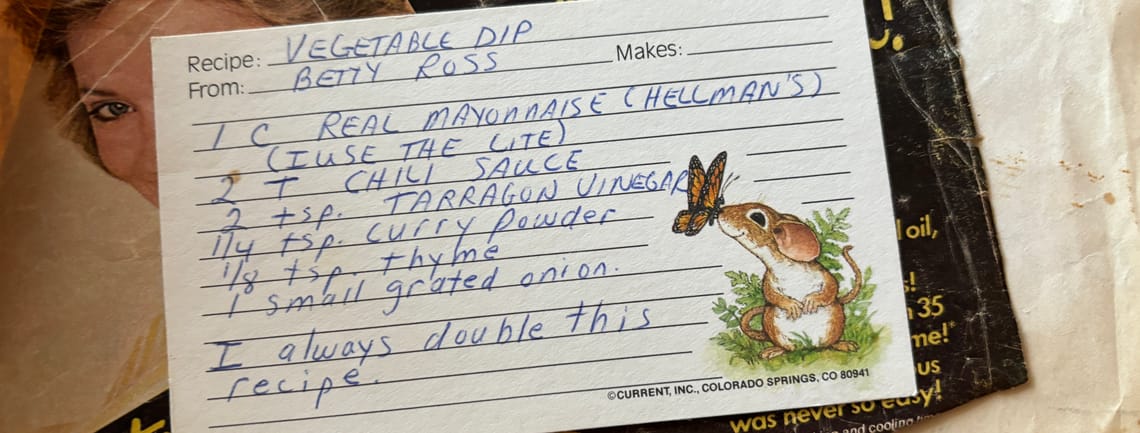 Recipe: VEGETABLE DIP
From: BETTY ROSS Makes:
1 C REAL MAYONNAISE (HELLMAN'S)
(I USE THE LITE)
2 T CHILI SAUCE
2 tsp. TARRAGON VINEGAR
1/4 tsp. curry powder
1/8 tsp. thyme
1 small grated onion.
I always double this
recipe.
©CURRENT, INC., COLORADO SPRINGS, CO 80941
!
oil,
!
35
me!*
us
was never so easy!
and cooling